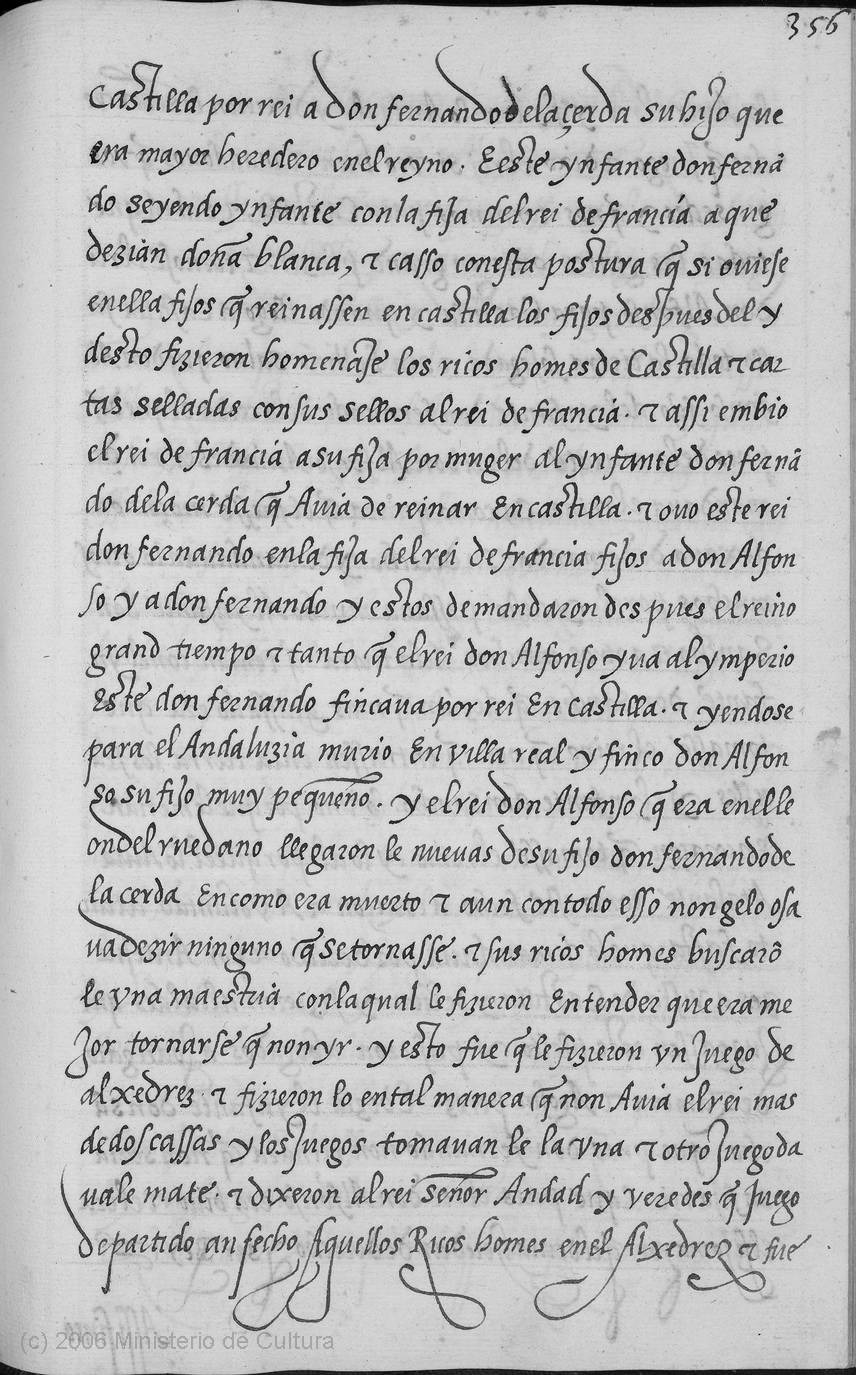 356
Castilla por rei a don fernando de la çerda su hijo que
era mayor heredero enel reyno. E este ynfante don fernã
do seyendo ynfante con la fija del rei de francia a que
dezian doña blanca, τ casso con esta postura q̃ si oviese
enella fijos q̃ reinassen en castilla los fijos despues del y
desto fizieron homenaje los ricos homes de Castilla τ car
tas selladas con sus sellos al rei de francia. τ assi embio
el rei de francia a su fija por muger al ynfante don fernã
do de la cerda q̃ Auia de reinar En castilla. τ ouo este rei
don fernando en la fija del rei de francia fijos a don Alfon
so y a don fernando y estos demandaron despues el reino
grand tiempo τ tanto q̃ el rei don Alfonso yua al ymperio
Este don fernando fincaua por rei En Castilla. τ yendose
para el Andaluzia murio En villa real y finco don Alfon
so su fijo muy pequeño. y el rei don Alfonso q̃ era enel le
on del ruedano llegaron le nuevas de su fijo don fernando de
la cerda En como era muerto τ aun con todo esso non gelo osa
ua dezir ninguno q̃ se tornasse. τ sus ricos homes buscarõ
le vna maestria con la qual le fizieron Entender que era me
jor tornarse q̃ non yr. y esto fue q̃ le fizieron vn juego de
alxedrez τ fizieron lo en tal manera q̃ non Auia el rei mas
de dos cassas y los juegos tomauan le la vna τ otro juego da
uale mate. τ dixeron al rei señor Andad y veredes q̃ juego
departido an fecho Aquellos Ricos homes enel Alxedrez τ fue
(c) 2006 Ministerio de Cultura